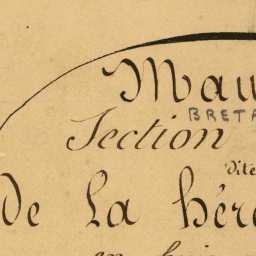 Mau
BRETA
Section
dite
De la hér